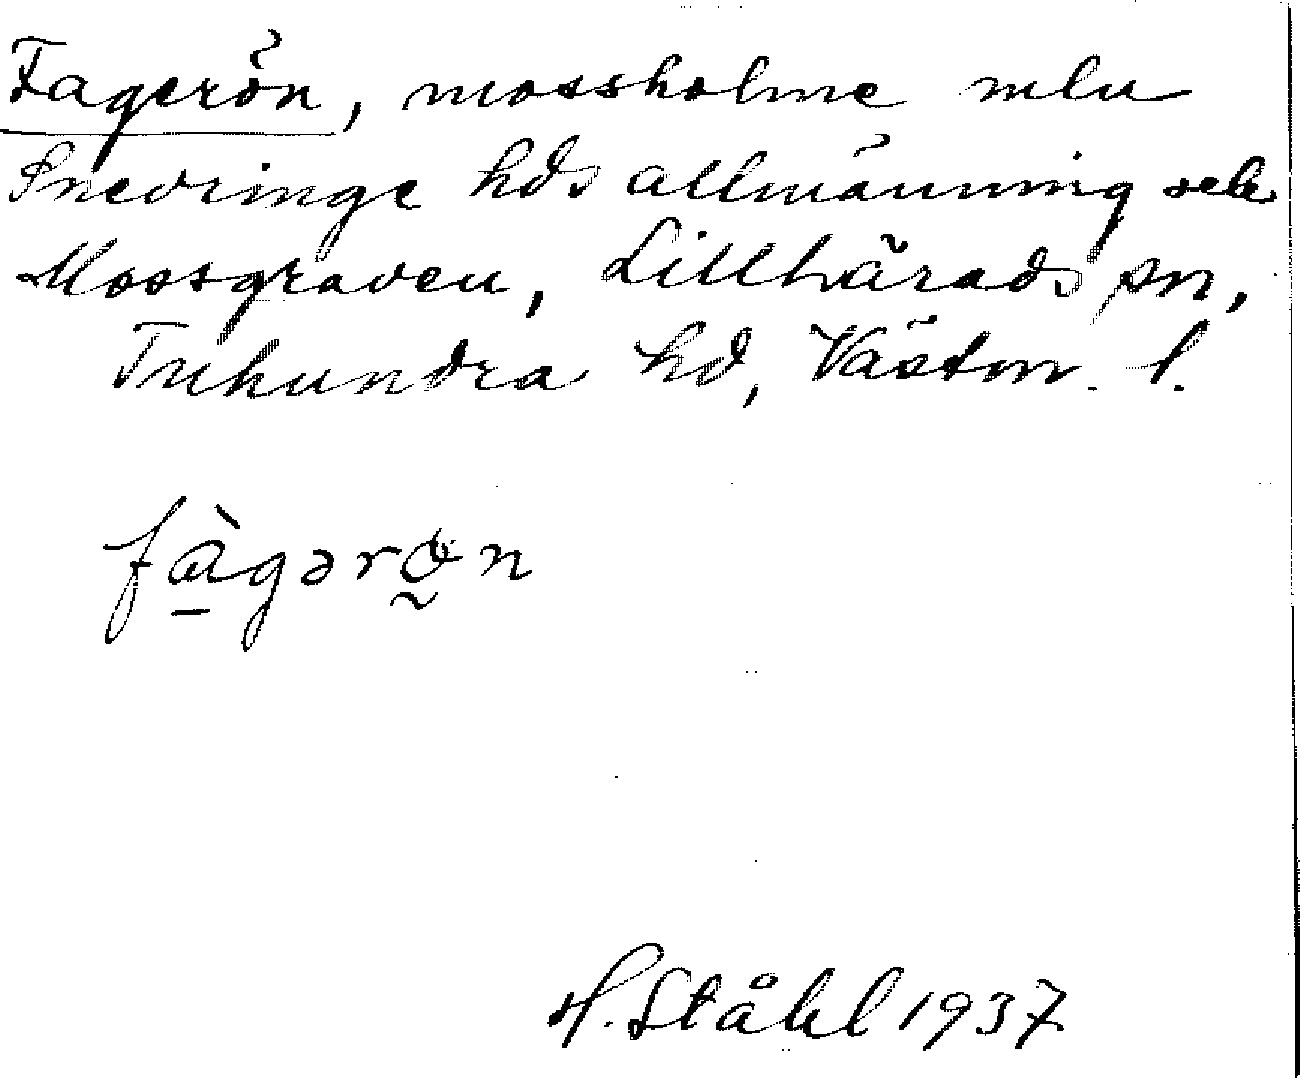 Fagerön, mossholme mln
Snevringe hds allmänning och
Mossgraven, Lillhärads sn,
Tuhundra hd, Västm. l.
fàgərøn
H. Ståhl 1937